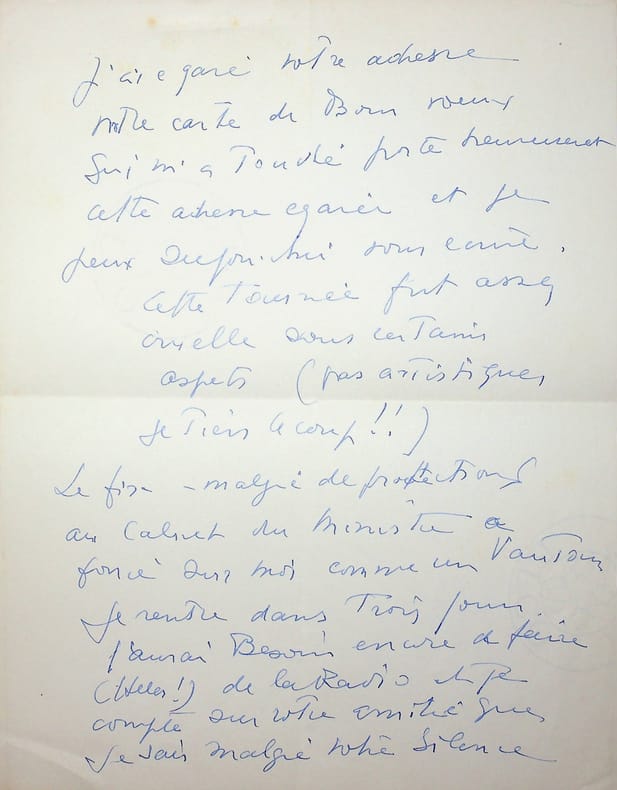 J'ai egaré votre adresse
votre carte de Bons voeux
Qui m'a Touché porte heureusement
cette adresse egarée et je
peux Aujourd'hui vous ecrire.
Cette Tournée fut assez
cruelle sous certains
aspets (pas artistiques
Je Tiens le coup!!)
Le fisc - malgré de protections
au Cabinet du Ministre a
foncé sur moi comme un Vautour
Je rentre dans Trois jours.
J'aurai Besoin encore de faire
(Helas!) de la Radio et je
compte sur votre amitié que
Je sais malgré votre Silence